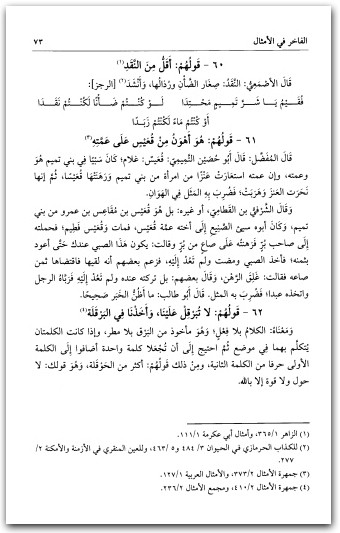 الفاخر في الأمثال ٧٣
٦٠ - قَولُهُمْ: أَقَلُّ مِنَ النَّقَدِ(١)
قَالَ الأَصْمَعِيُّ: النَّقَدُ: صِغَار الضَّأنِ ورُذَالُها، وَأَنْشَدَ(٢) [الرجز]:
فُقَيْمُ يَا شَـرَّ تَمِيـمٍ مَحْتِدَا لَـوْ كُنْتُمُ ضَـأْنًا لَكُنْتُمْ نَقَـدَا
أوْ كُنْتُمُ مَاءً لَكُنْتُمْ زَبَـدَا
٦١ - قَولُهُمْ: هُوَ أَهْوَنُ مِنْ قُعَيْسٍ عَلَى عَمَّتِهِ(٣)
قَالَ المُفَضَّل: قَالَ أَبو حُصَيْنٍ التَّمِيمِيُّ: قُعَيْسٌ: غلام؛ كَانَ سَبْيًا في بني تميم هُوَ
وعمته، وإن عمته استعَارَت عَنْزًا من امرأة من بني تميم وَرَهَنَتْهَا قُعَيْسًا، ثُمَّ إنها
نَحَرَت العَنزَ وَهَرَبَتْ؛ فَضُرِبَ بِهِ المَثَل في الهَوَانِ.
وَقَالَ الشَّرْقِيُّ بن القَطَامِيِّ، أو غيره: بل هو قُعَيْس بن مُقَاعِس بن عمرو من بني
تميم، وَكَانَ أبوه سيئ الصَّنِيع إلى أخته عمَّة قُعَيْس، فمات وقُعَيْس فَطِيم؛ فحملته
إلى صاحب بُرٍّ فَرَهنته على صَاعٍ من بُرٍّ وقالت: يكون هَذَا الصبي عندك حَتَّى أعود
بثمنه؛ فأخذ الصبي ومضت ولم تَعُدْ إِلَيْهِ، فزعم بعضهم أنه لقيها فاقتضاها ثمن
صاعه فقالت: غَلِقَ الرَّهْن، وَقَالَ بعضهم: بل تركته عنده ولم تَعُدْ إِلَيْهِ فَرَبَاهُ الرجل
واتخذه عبدا؛ فَضُرِبَ به المثل. قَالَ أبو طالب: ما أَظُنُّ الخَبَر صَحِيحًا.
٦٢ - قَولُهُمْ: لا تُبَرْقِلْ عَلَيْنَا، وَأَخَذْنَا فِي البَرْقَلَةِ(٤)
وَمَعْنَاهُ: الكلامُ بلا فِعْلٍ؛ وهُوَ مأخوذ من البَرْق بلا مطر، وإذا كانت الكلمتان
يُتكلَّم بهما في موضع ثُمَّ احتيج إلى أن تُجْعَلا كلمة واحدة أضافوا إلى الكلمة
الأولى حرفا من الكلمة الثانية، ومِنْ ذلك قَولُهُمْ: أكثر من الحَوْقَلَة، وهو قولك: لا
حول ولا قوة إلا بالله.
(١) الزاهر ٣٦٥/١، وأمثال أبي عكرمة ١١١/١.
(٢) للكذاب الحرمازي في الحيوان ٣/ ٤٨٤ و٥/ ٤٦٣، وللعين المنقري في الأزمنة والأمكنة ٢/
٢٧٧.
(٣) جمهرة الأمثال ٣٧٣/٢، والأمثال العربية ١٢٧/١.
(٤) جمهرة الأمثال ٤١٠/٢، ومجمع الأمثال ٢٣٦/٢.